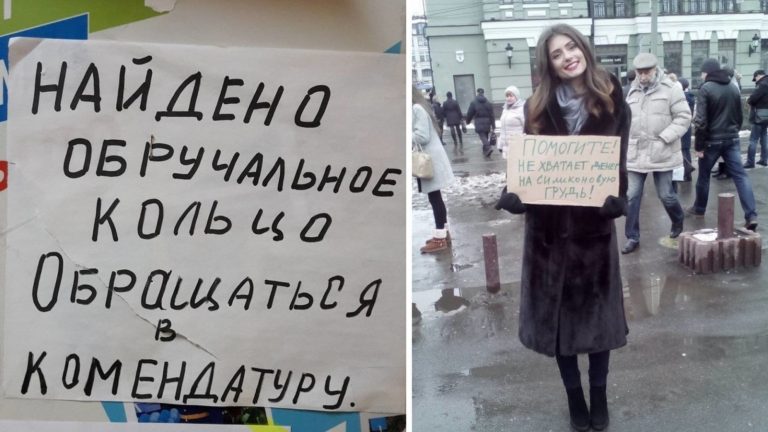 НАЙДЕНО
ОБРУЧАЛЬНОЕ
КОЛЬЦО
ОБРАЩАТЬСЯ
В
КОМЕНДАТУРУ.
ПОМОГИТЕ!
НЕ ХВАТАЕТ ДЕНЕГ
НА СИЛИКОНОВУЮ
ГРУДЬ!